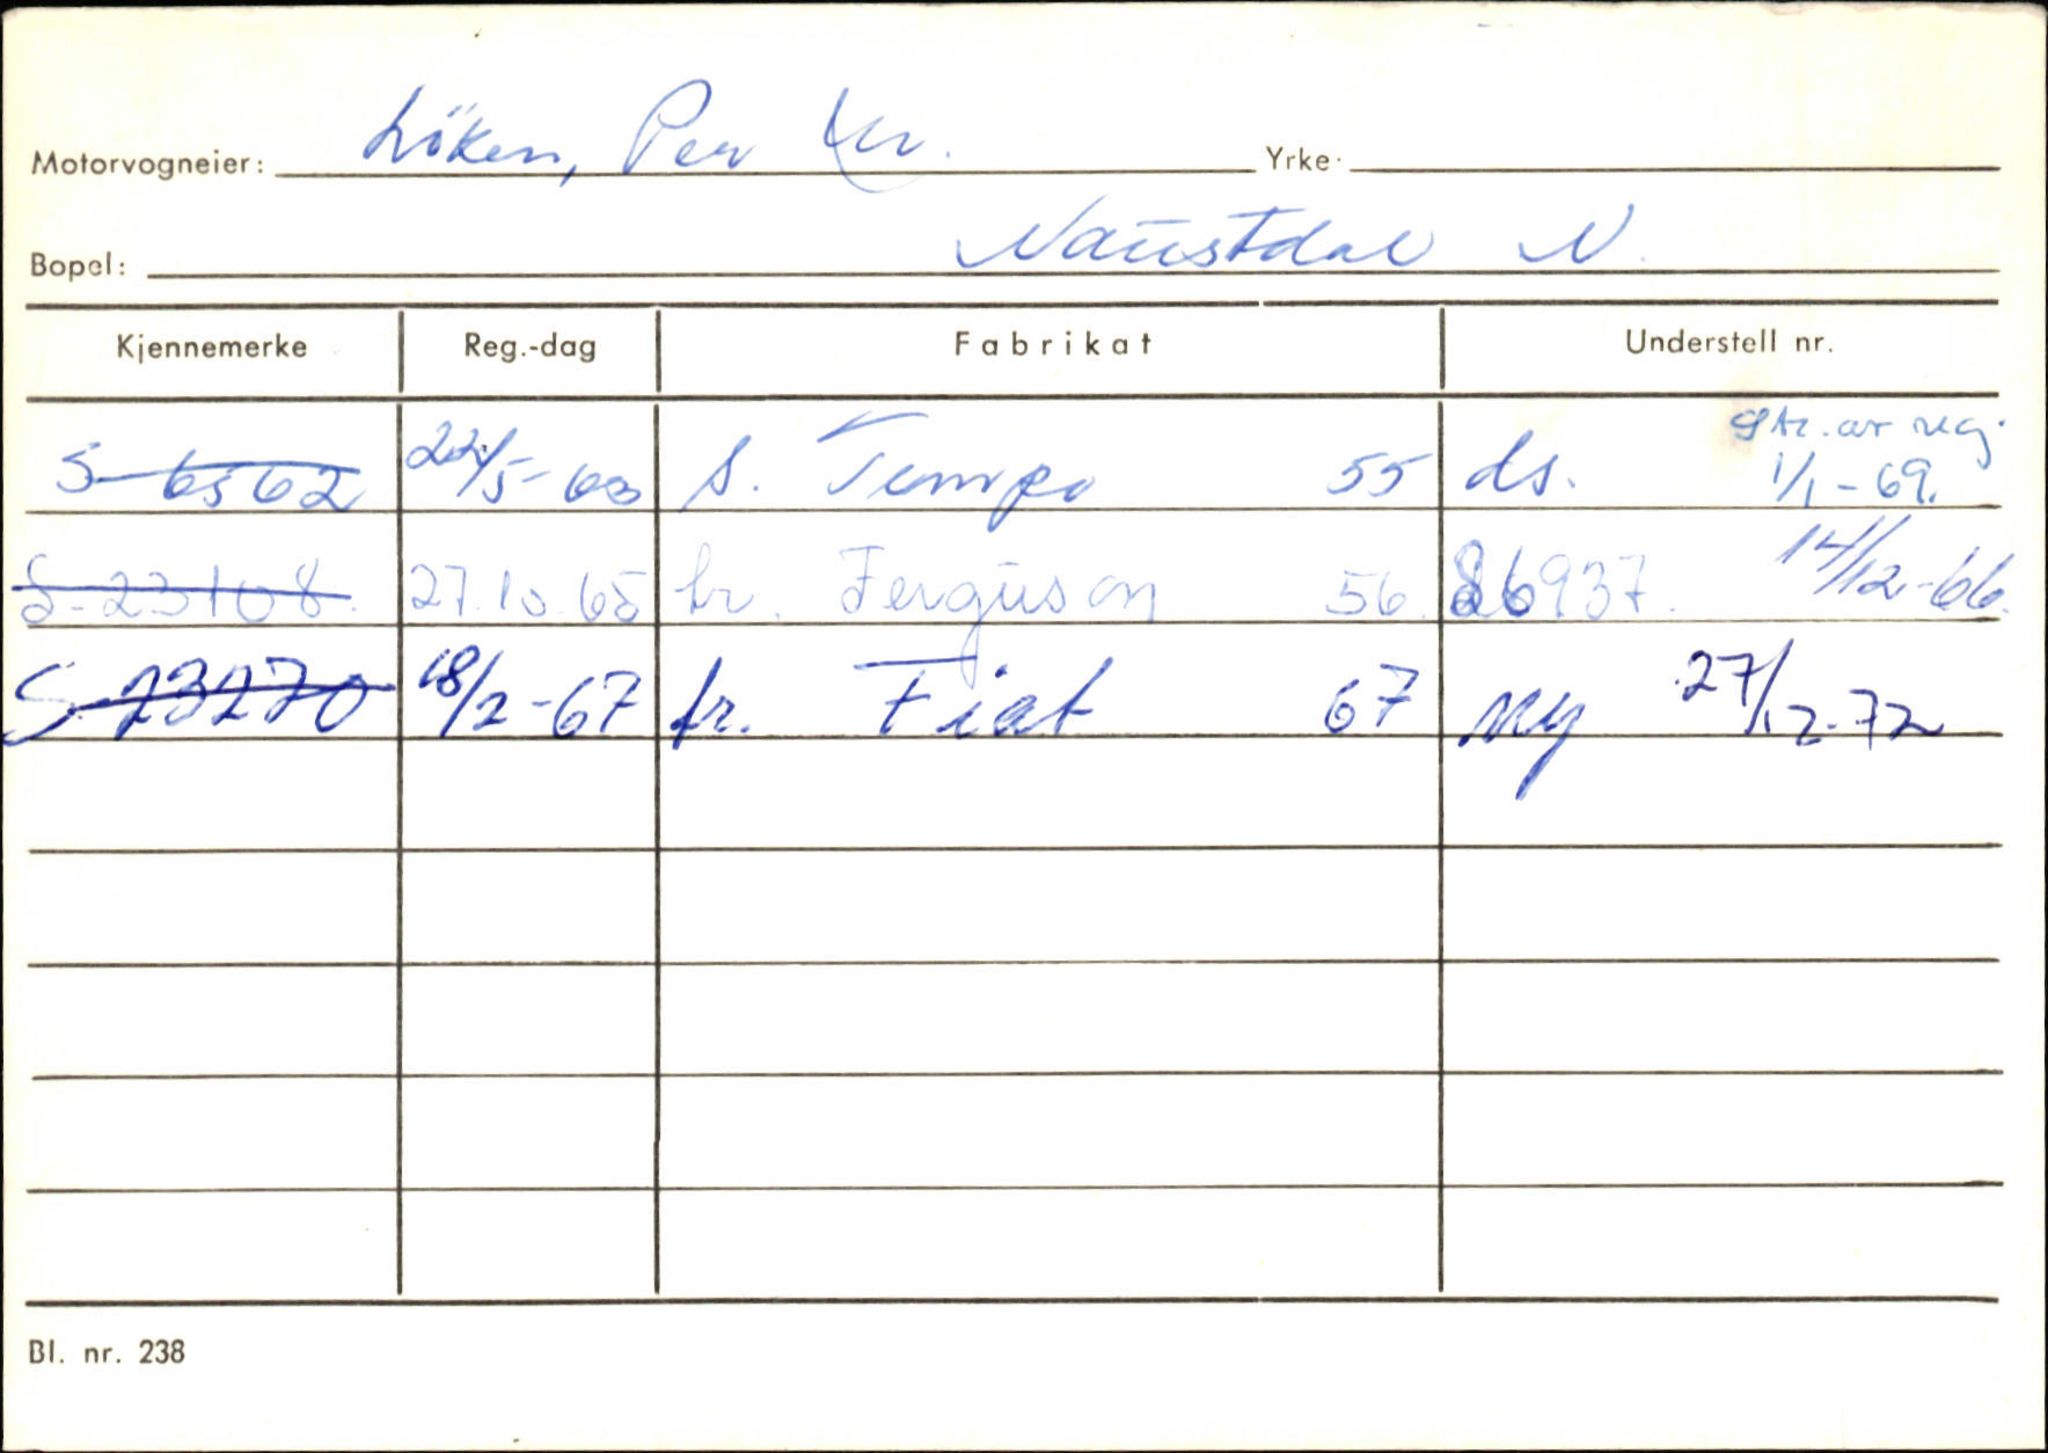 Motorvogneier: Löken, Per Kr. Yrke.
Bopel: Naustdal N.
Kjennemerke Reg.-dag Fabrikat Understell nr.
S-6562 22/5-63 s. Tempo 55 ds. str. av reg. 1/1-69.
S-23108. 27.10.65 tr. Ferguson 56. 86937. 14/12-66.
S-23270 18/2-67 tr. Fiat 67 ny 27/12-72
Bl. nr. 238